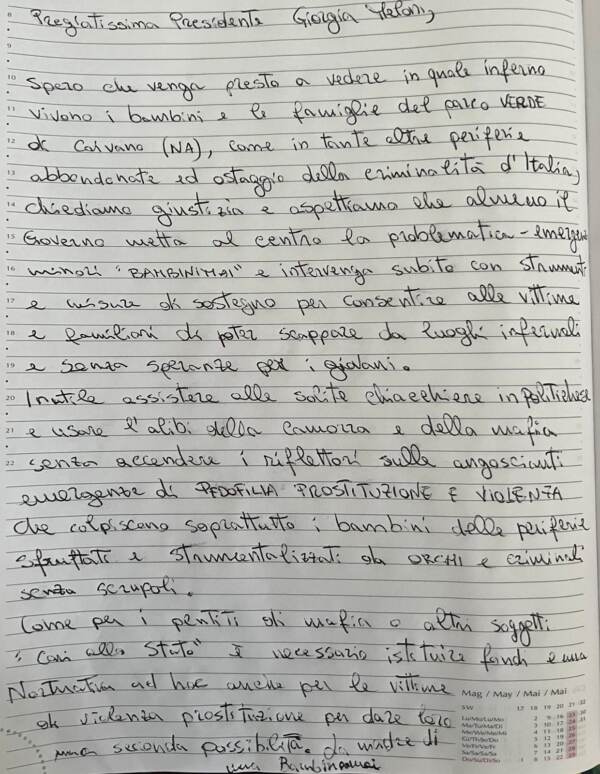 Pregiatissima Presidente Giorgia Meloni,
Spero che venga presto a vedere in quale inferno
vivono i bambini e le famiglie del parco VERDE
di Caivano (NA), come in tante altre periferie
abbandonate ed ostaggio della criminalità d'Italia,
chiediamo giustizia e aspettiamo che almeno il
Governo metta al centro la problematica-emergenza
minori "BAMBINIMAI" e intervenga subito con strumenti
e misure di sostegno per consentire alle vittime
e familiari di poter scappare da luoghi infernali
e senza speranze per i giovani.
Inutile assistere alle solite chiacchiere in politichese
e usare l'alibi della camorra e della mafia
senza accendere i riflettori sulle angoscianti
emergenze di PEDOFILIA PROSTITUZIONE E VIOLENZA
che colpiscono soprattutto i bambini delle periferie
sfruttati e strumentalizzati da ORCHI e criminali
senza scrupoli.
Come per i pentiti di mafia o altri soggetti
"Cari allo Stato" è necessario istituire fondi e una
Normativa ad hoc anche per le vittime
di violenza prostituzione per dare loro
una seconda possibilità. da madre di
una Bambinamai
Mag / May / Mai / Mai